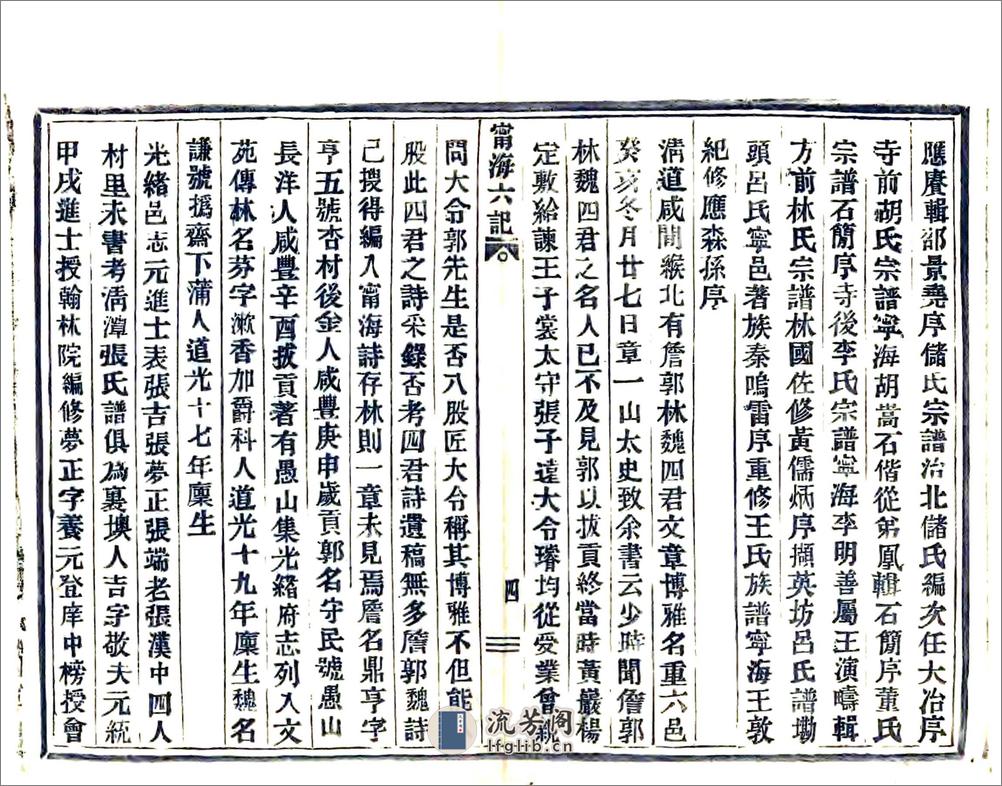 應賡輯邵景堯序儲氏宗譜治北儲氏編次任大冶序
寺前胡氏宗譜寧海胡嵩石偕從弟凰輯石簡序董氏
宗譜石簡序寺後李氏宗譜寧海李明善屬王演疇輯
方前林氏宗譜林國佐修黃儒炳序擷英坊呂氏譜墈
頭呂氏寧邑著族秦鳴雷序重修王氏族譜寧海王敦
紀修應森孫序
淸道咸間緱北有詹郭林魏四君文章博雅名重六邑
癸亥冬月廿七日章一山太史致余書云少時聞詹郭
林魏四君之名人已不及見郭以拔貢終當時黃巖楊
定敷給諫王子裳太守張子遠大令璿均從受業曾親
甯海六記
四
問大令郭先生是否八股匠大令稱其博雅不但能八
股此四君之詩采錄否考四君詩遺稿無多詹郭魏詩
己搜得編入甯海詩存林則一章未見焉詹名鼎亨字
亨五號杏村後金人咸豐庚申歲貢郭名守民號愚山
長洋人咸豐辛酉拔貢著有愚山集光緖府志列入文
苑傳林名芬字漱香加爵科人道光十九年廩生魏名
謙號撝齋下蒲人道光十七年廩生
光緖邑志元進士表張吉張夢正張端老張漢中四人
村里未書考淸潭張氏譜俱為裏墺人吉字敬夫元統
甲戌進士授翰林院編修夢正字養元登庠中榜授會
流芳阁
lfglib.cn